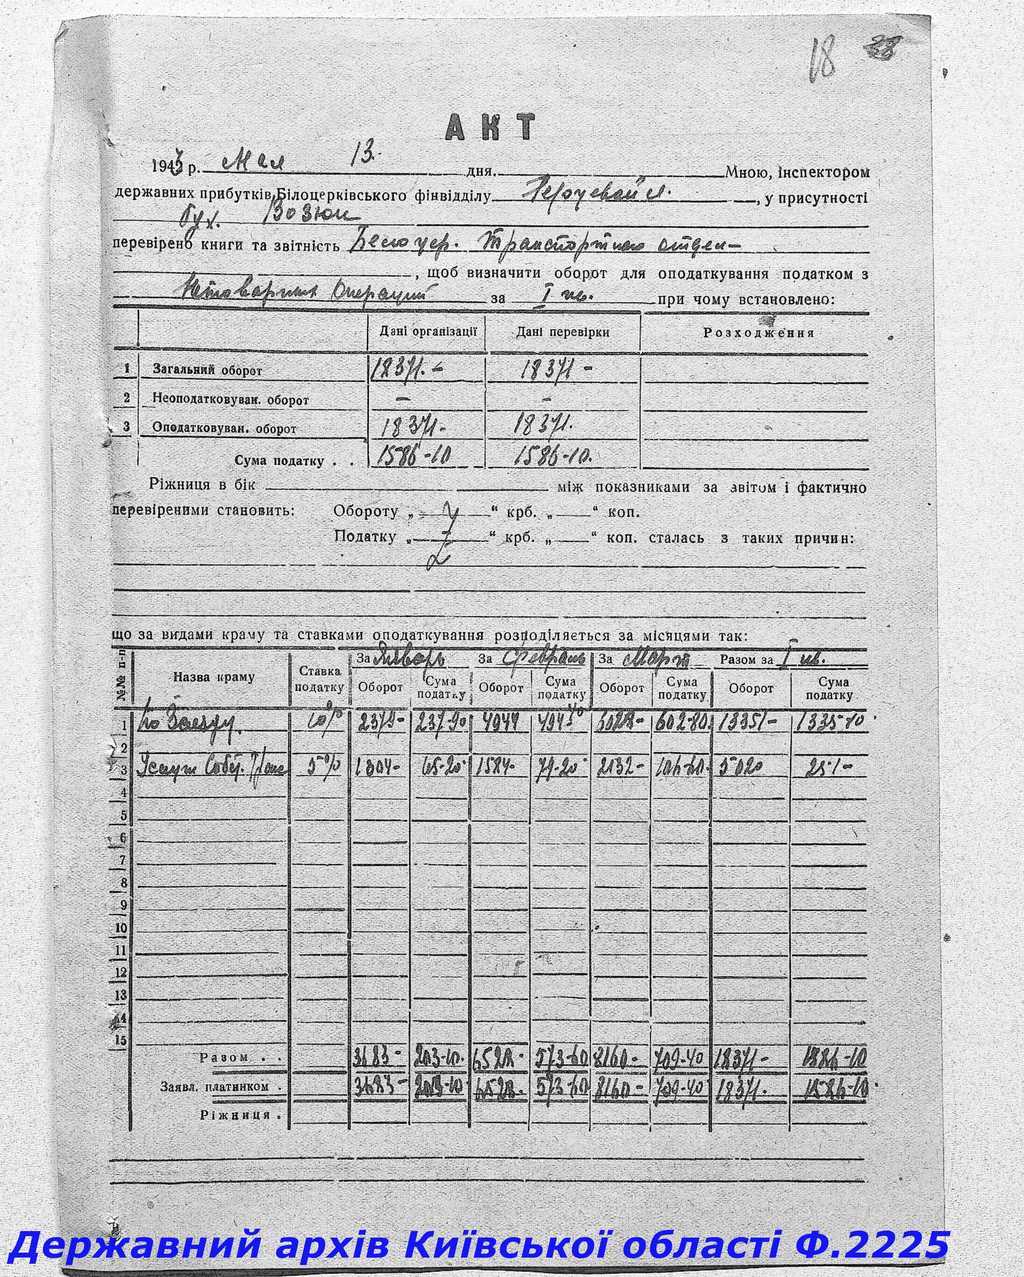 18 38
АКТ
1943 р. Мая 13. дня. Мною, інспектором
державних прибутків Білоцерківського фінвідділу , у присутності
бух.
перевірено книги та звітність Белоцер. Транспортного отдел
, щоб визначити оборот для оподаткування податком з
Нетоварных Операций за I кв. при чому встановлено:
Дані організації Дані перевірки Розходження
1 Загальний оборот 18371.- 18371-
2 Неоподатковуван. оборот - -
3 Оподатковуван. оборот 18371- 18371.
Сума податку . . 1586-10 1586-10.
Ріжниця в бік між показниками за звітом і фактично
перевіреними становить: Обороту „ “ крб. „ “ коп.
Податку „ “ крб. „ “ коп. сталась з таких причин:
що за видами краму та ставками оподаткування розподіляється за місяцями так:
№№ п-п Назва краму Ставка податку За Январь За Февраль За Март Разом за I кв.
Оборот Сума податку Оборот Сума податку Оборот Сума податку Оборот Сума податку
1 10% 2379- 237-90 4944 494-40 6028- 602-80 13351- 1335-10
2
3 5% 1304- 65-20 1584- 79-20 2132- 106-60 5020 251-
4
5
6
7
8
9
10
11
12
13
14
15
Разом . . 3683- 303-10 6528- 573-60 8160- 709-40 18371- 1586-10
Заявл. платником . 3683- 303-10 6528- 573-60 8160- 709-40 18371- 1586-10
Ріжниця .
Державний архів Київської області Ф.2225